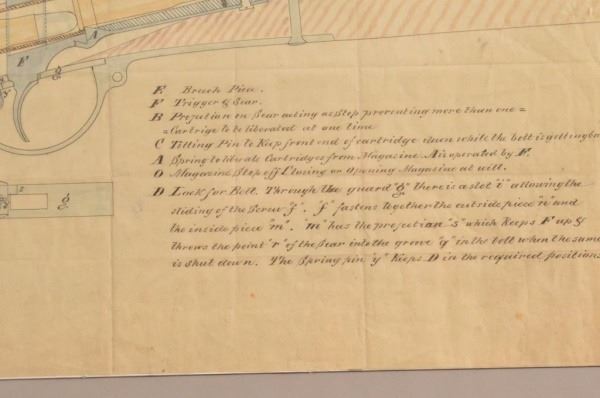 F
A
g
s
s
g
E Breach Piece.
F Trigger & Sear.
B Projection on Sear acting as Stop preventing more than one =
= Cartrige to be liberated at one time
C Tilting Pin to Keep front end of cartridge down while the bolt is getting ba
A Spring to liberate Cartridges from Magazine. A is operated by F.
O Magazine Stop off Closing or Opening Magazine at will.
D Lock for Bolt. Through the guard "g" there is a slot "i" allowing the
sliding of the Screw "f". "f" fastens together the outside piece "n" and
the inside piece "m". "m" has the projection "s" which Keeps F up &
throws the point "r" of the Sear into the grove "q" in the bolt when the same
is shut down. The Spring pin "y" Keeps D in the required positions